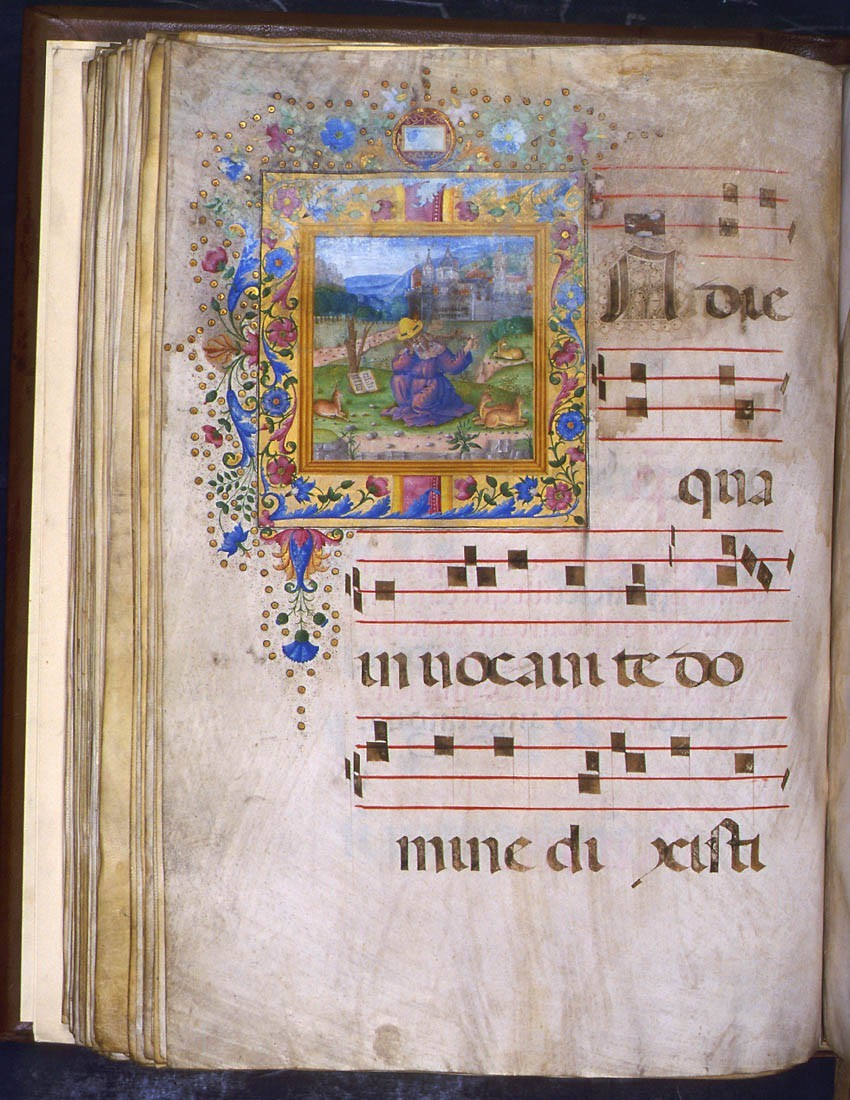 IN die
qua
in uocaui te do
mine di xisti